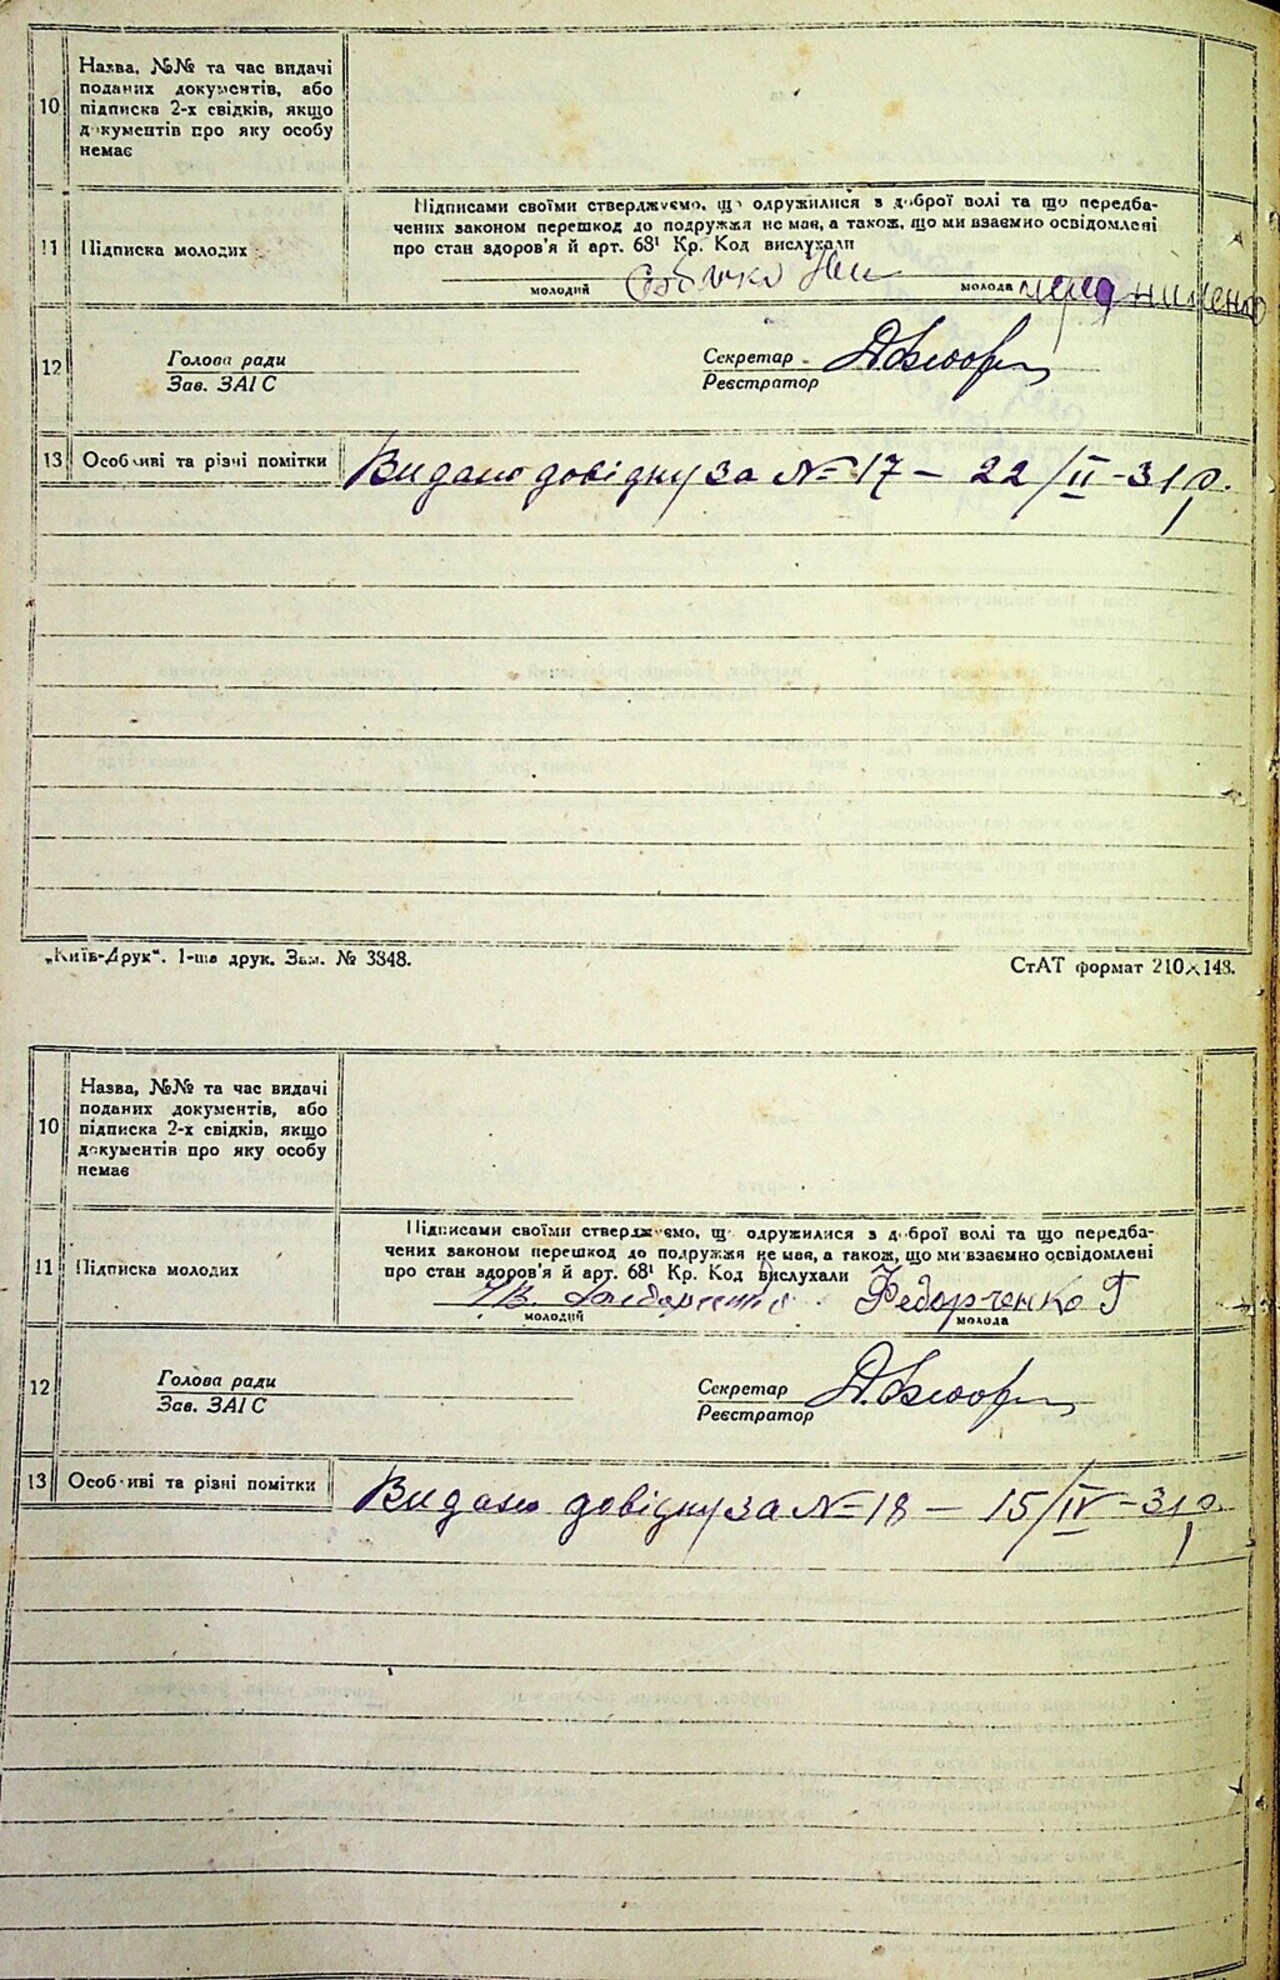 10
Назва, №№ та час видачі
поданих документів, або
підписка 2-х свідків, якщо
документів про яку особу
немає
11
Підписка молодих
Підписами своїми стверджуємо, що одружилися з доброї волі та що передба-
чених законом перешкод до подружжя не мав, а також, що ми взаємно освідомлені
про стан здоров'я й арт. 68¹ Кр. Код вислухали
молодий
молода
12
Голова ради
Зав. ЗАІС
Секретар
Реєстратор
13
Особливі та різні помітки
Видано довідку за №=17 – 22/II-31 р.
„Київ-Друк“. 1-ша друк. Зам. № 3348.
СтАТ формат 210×148.
10
Назва, №№ та час видачі
поданих документів, або
підписка 2-х свідків, якщо
документів про яку особу
немає
11
Підписка молодих
Підписами своїми стверджуємо, що одружилися з доброї волі та що передба-
чених законом перешкод до подружжя не мав, а також, що ми взаємно освідомлені
про стан здоров'я й арт. 68¹ Кр. Код вислухали
Федорченко Г
молодий
молода
12
Голова ради
Зав. ЗАІС
Секретар
Реєстратор
13
Особливі та різні помітки
Видано довідку за №=18 – 15/IV-31 р.